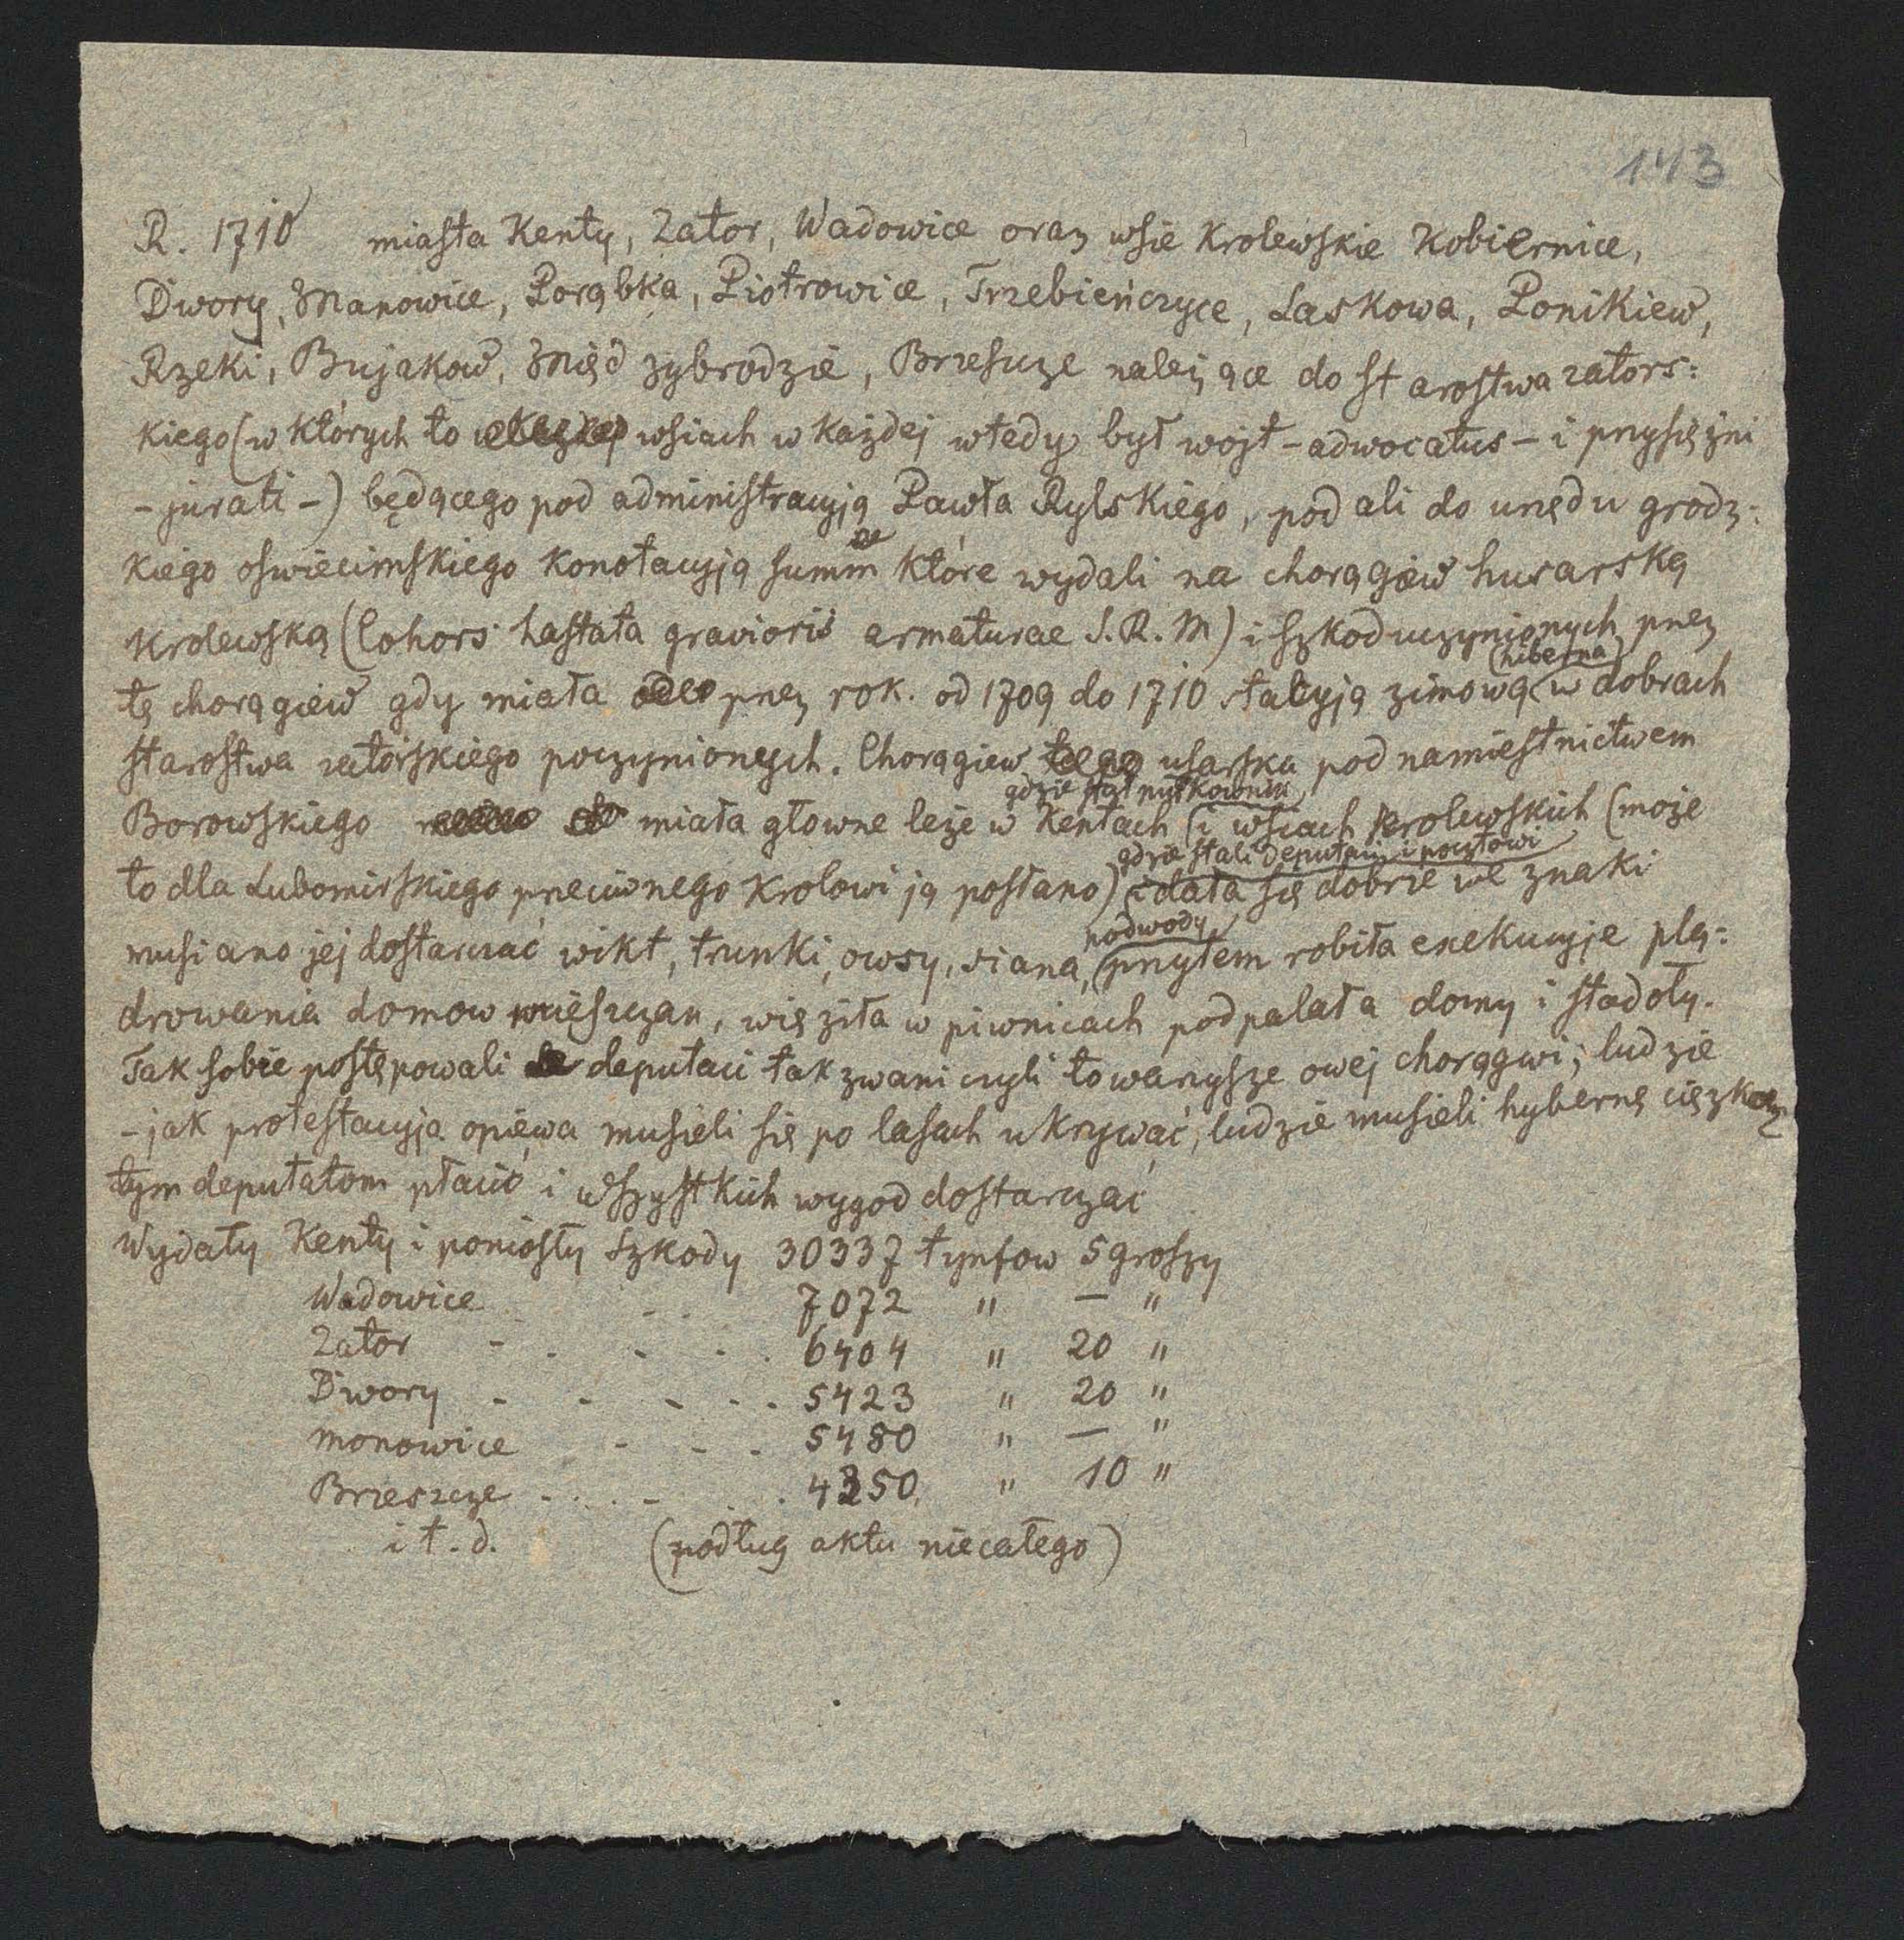 143
R. 1710 miasta Kenty, Zator, Wadowice oraz wsie Krolewskie Kobiernice,
Dwory, Manowice, Porąbka, Piotrowice, Trzebieńczyce, Laskowa, Ponikiew,
Rzeki, Bujakow, Międzybrodzie, Brzeszcze należące do starostwa zators:
kiego (w których to wsiach w każdej wtedy był wojt - adwocatus - i przysiężni
- jurati -) będącego pod administracyją Pawła Rylskiego, podali do urzędu grodz:
kiego oswiecimskiego konotacyją summ które wydali na chorągiew husarską
krolewską (Cohors hastata gravioris armaturae S. R. M) i szkod uczynionych przez
(hiberna)
tę chorągiew gdy miała przez rok. od 1709 do 1710 stacyją zimową w dobrach
starostwa zatorskiego poczynionych. Chorągiew usarska pod namiestnictwem
gdzie stał
Borowskiego miała głowne leże w Kentach i wsiach krolewskich (może
gdzie stali deputaci i pocztowi
to dla Lubomirskiego przeciwnego Krolowi ją posłano) i dała się dobrze we znaki
podwody,
musiano jej dostarczać wikt, trunki, owsy, siana, przytem robiła exekucyje plą:
drowania domow mieszczan, więziła w piwnicach podpalała domy i stodoły.
Tak sobie postępowali deputaci tak zwani czyli towarzysze owej chorągwi; ludzie
- jak protestacyja opiewa musieli się po lasach ukrywać, ludzie musieli hybernę ciężką
tym deputatom płacić i wszystkich wygod dostarczać
Wydały Kenty i poniosły szkody 30337 tynfow 5 groszy
Wadowice - - 7072 " — "
Zator - - - - - 6404 " 20 "
Dwory - - - - - 5423 " 20 "
Monowice - - - 5480 " — "
Brzeszcze - . . - . . 4350 " 10 "
i t. d. (podług aktu niecałego)